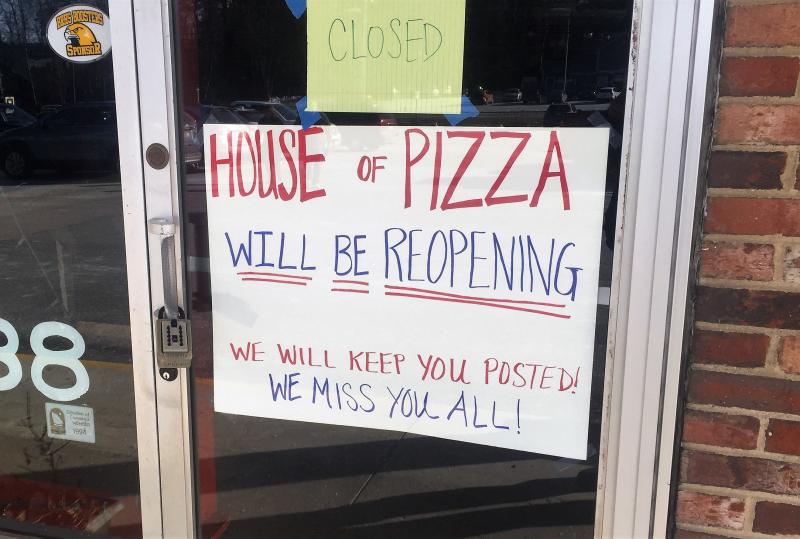 CLOSED
HOUSE OF PIZZA
WILL BE REOPENING
WE WILL KEEP YOU POSTED!
WE MISS YOU ALL!
SPONSOR
88
1998